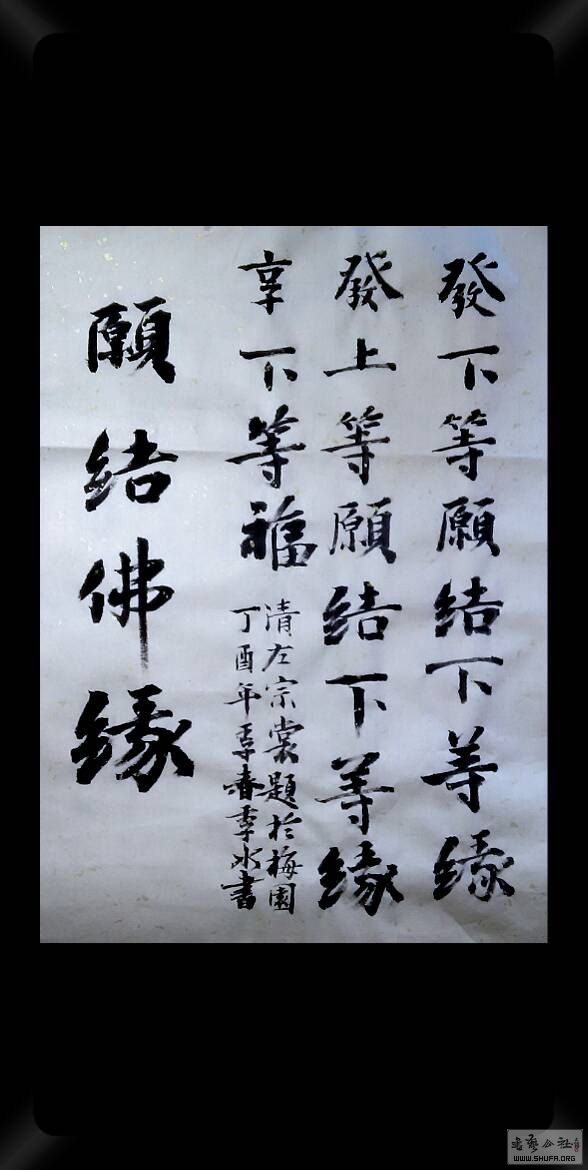 發下等願結下等緣
發上等願結下等緣
享下等福
清左宗裳題於梅園
丁酉年季春季水書
願結佛緣
書藝公社
WWW.SHUFA.ORG